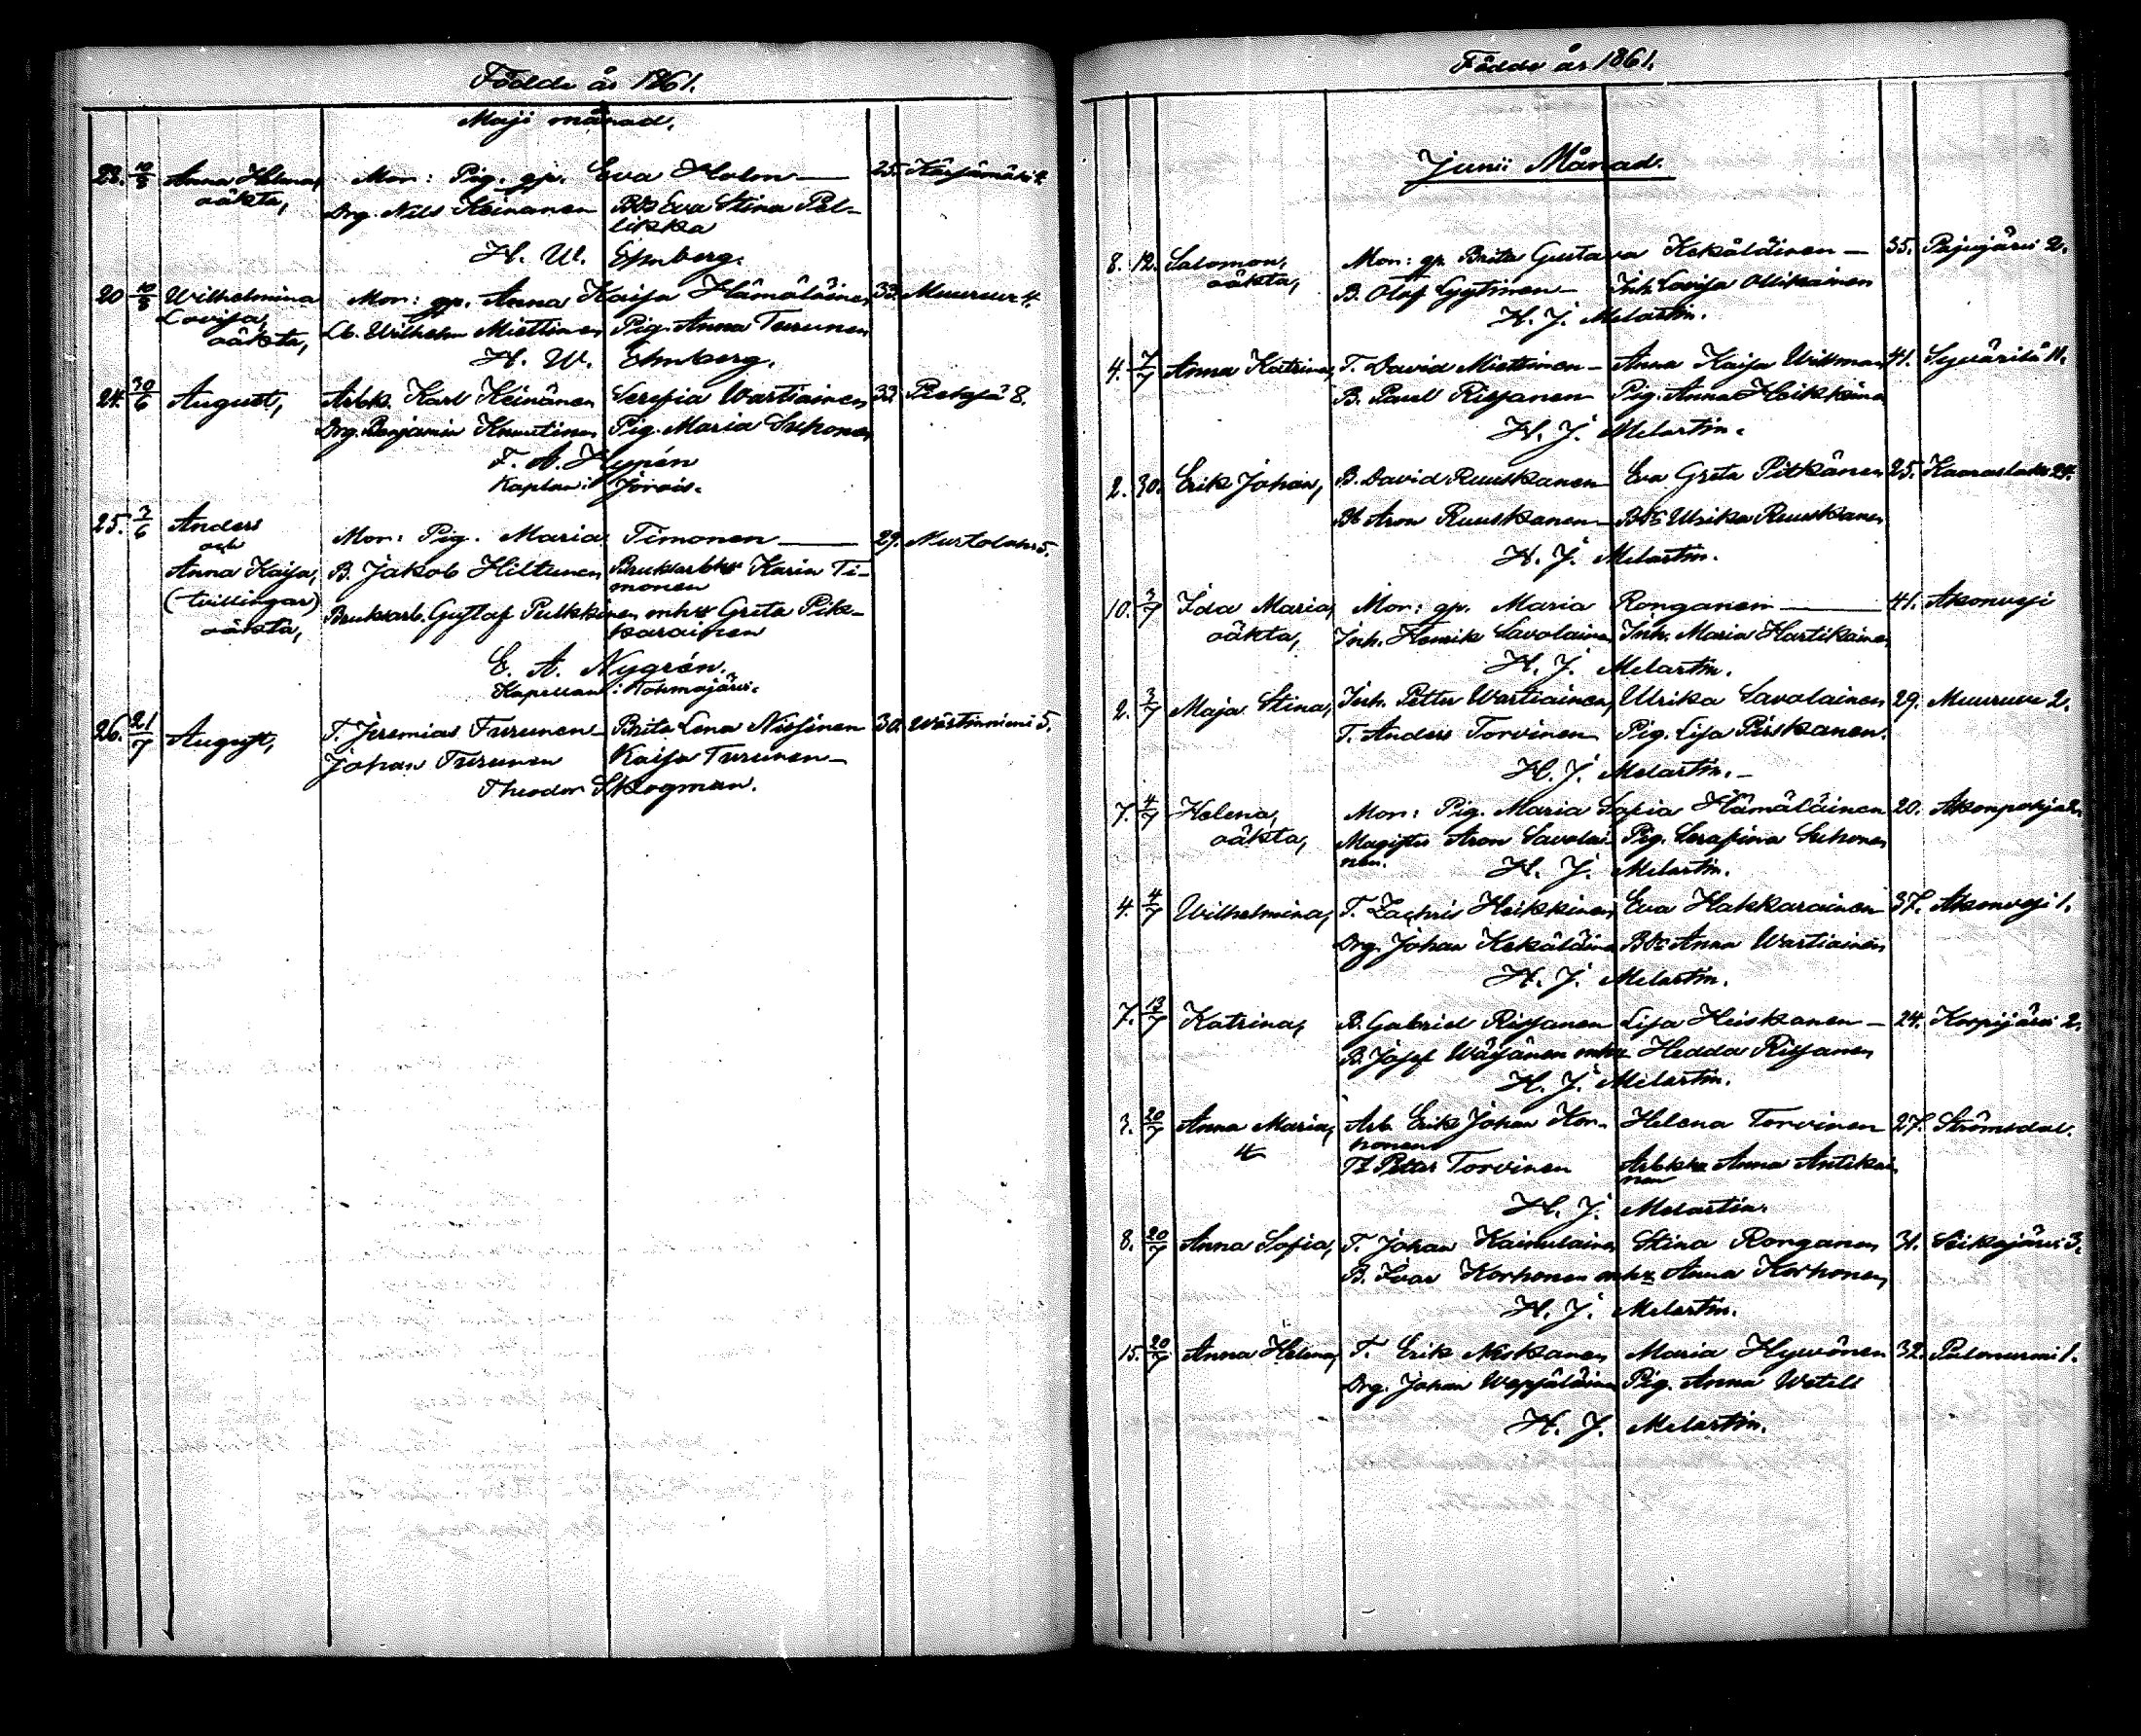 Födde år 1861.
Maji månad.
23. 10/8 Anna Helena, Mor: Pig. gp. Eva Holm — 25. Kärsämäki 4.
oäkta, Drg. Nils Keinanen Bds Eva Stina Pel-
likka
H. W. Ehnberg.
20 10/8 Wilhelmina Mor: gp. Anna Kaisa Hämäläinen 33. Muuruv 4.
Lovisa, Lb. Wilhelm Miettinen Pig. Anna Turunen
oäkta,
H. W. Ehnberg.
24. 30/6 August, Arbk. Karl Keinänen Serafia Wartiainen 33.
Drg. Benjamin Knuutinen Pig. Maria Suhonen
F. A. Hypén
Kaplan i Jorois.
25. 7/6 Anders
och Mor: Pig. Maria Timonen — 29. Murtolaks 5.
Anna Kaisa, B. Jakob Hiltunen Brukkarbhu Karin Ti-
monen
(tvillingar) Brukkarb. Gustaf Pulkkinen mhu Greta Pik-
karainen
oäkta,
E. A. Nygrén.
Kapellan i Tohmajärvi.
26. 21/7 August, T. Jeremias Turunen Brita Lena Nissinen 30. Wästinniemi 5.
Johan Turunen Kaisa Turunen —
Theodor Skogman.
Födde år 1861.
Junii Månad.
8. 12. Salomon, Mor: gp. Brita Gustava Kekäläinen — 35. Pajujärvi 2.
oäkta, B. Olof Lyytinen — Inh. Lovisa Ollikainen
H. J. Melartin.
4. 7/7 Anna Katrina, T. David Miettinen — Anna Kaisa Willman 41. Syväristä 11.
B. Pavel Rissanen Pig. Anna Heikkinen
H. J. Melartin.
2. 30. Erik Johan, B. David Ruuskanen Eva Greta Pitkänen 25. Kaaraslaks 24.
Bs Aron Ruuskanen — Bds Ulrika Ruuskanen
H. J. Melartin.
10. 3/7 Ida Maria, Mor: gp. Maria Ronganen — 41. Akonvesi
oäkta, Inh. Henrik Savolainen Inh. Maria Hartikainen
H. J. Melartin.
2. 3/7 Maja Stina, Inh. Petter Wartiainen, Ulrika Savolainen 29. Muuruv 2.
T. Anders Torvinen Pig. Lisa Piiskanen.
H. J. Melartin. —
7. 4/7 Helena, Mor: Pig. Maria Sofia Hämäläinen 20. Akonpohja 2.
oäkta, Magister Aron Savolai- Pig. Serafina Suhonen
nen. H. J. Melartin.
4. 4/7 Wilhelmina, T. Zachris Heikkinen, Eva Hakkarainen 37. Akonvesi 1.
Drg. Johan Kekäläinen Bds Anna Wartiainen
H. J. Melartin.
7. 13/7 Katrina, B. Gabriel Rissanen Lisa Heiskanen — 24. Korpijärvi 2.
B. Josef Wäisänen mhu Hedda Rissanen
H. J. Melartin.
3. 20/7 Anna Maria, Arb. Erik Johan Kor- Helena Torvinen 27. Strömsdal.
4 honen
Petter Torvinen Arbkhu Anna Antikai-
nen
H. J. Melartin.
8. 20/7 Anna Sofia, T. Johan Kainulainen Stina Ronganen 31. Siikajärvi 3.
B. Ivar Korhonen mhu Anna Korhonen,
H. J. Melartin.
15. 20/7 Anna Helena, T. Erik Niskanen, Maria Hyvönen 32. Palonurmi 1.
Drg. Johan Wepsäläinen Pig. Anna Wetell
H. J. Melartin.